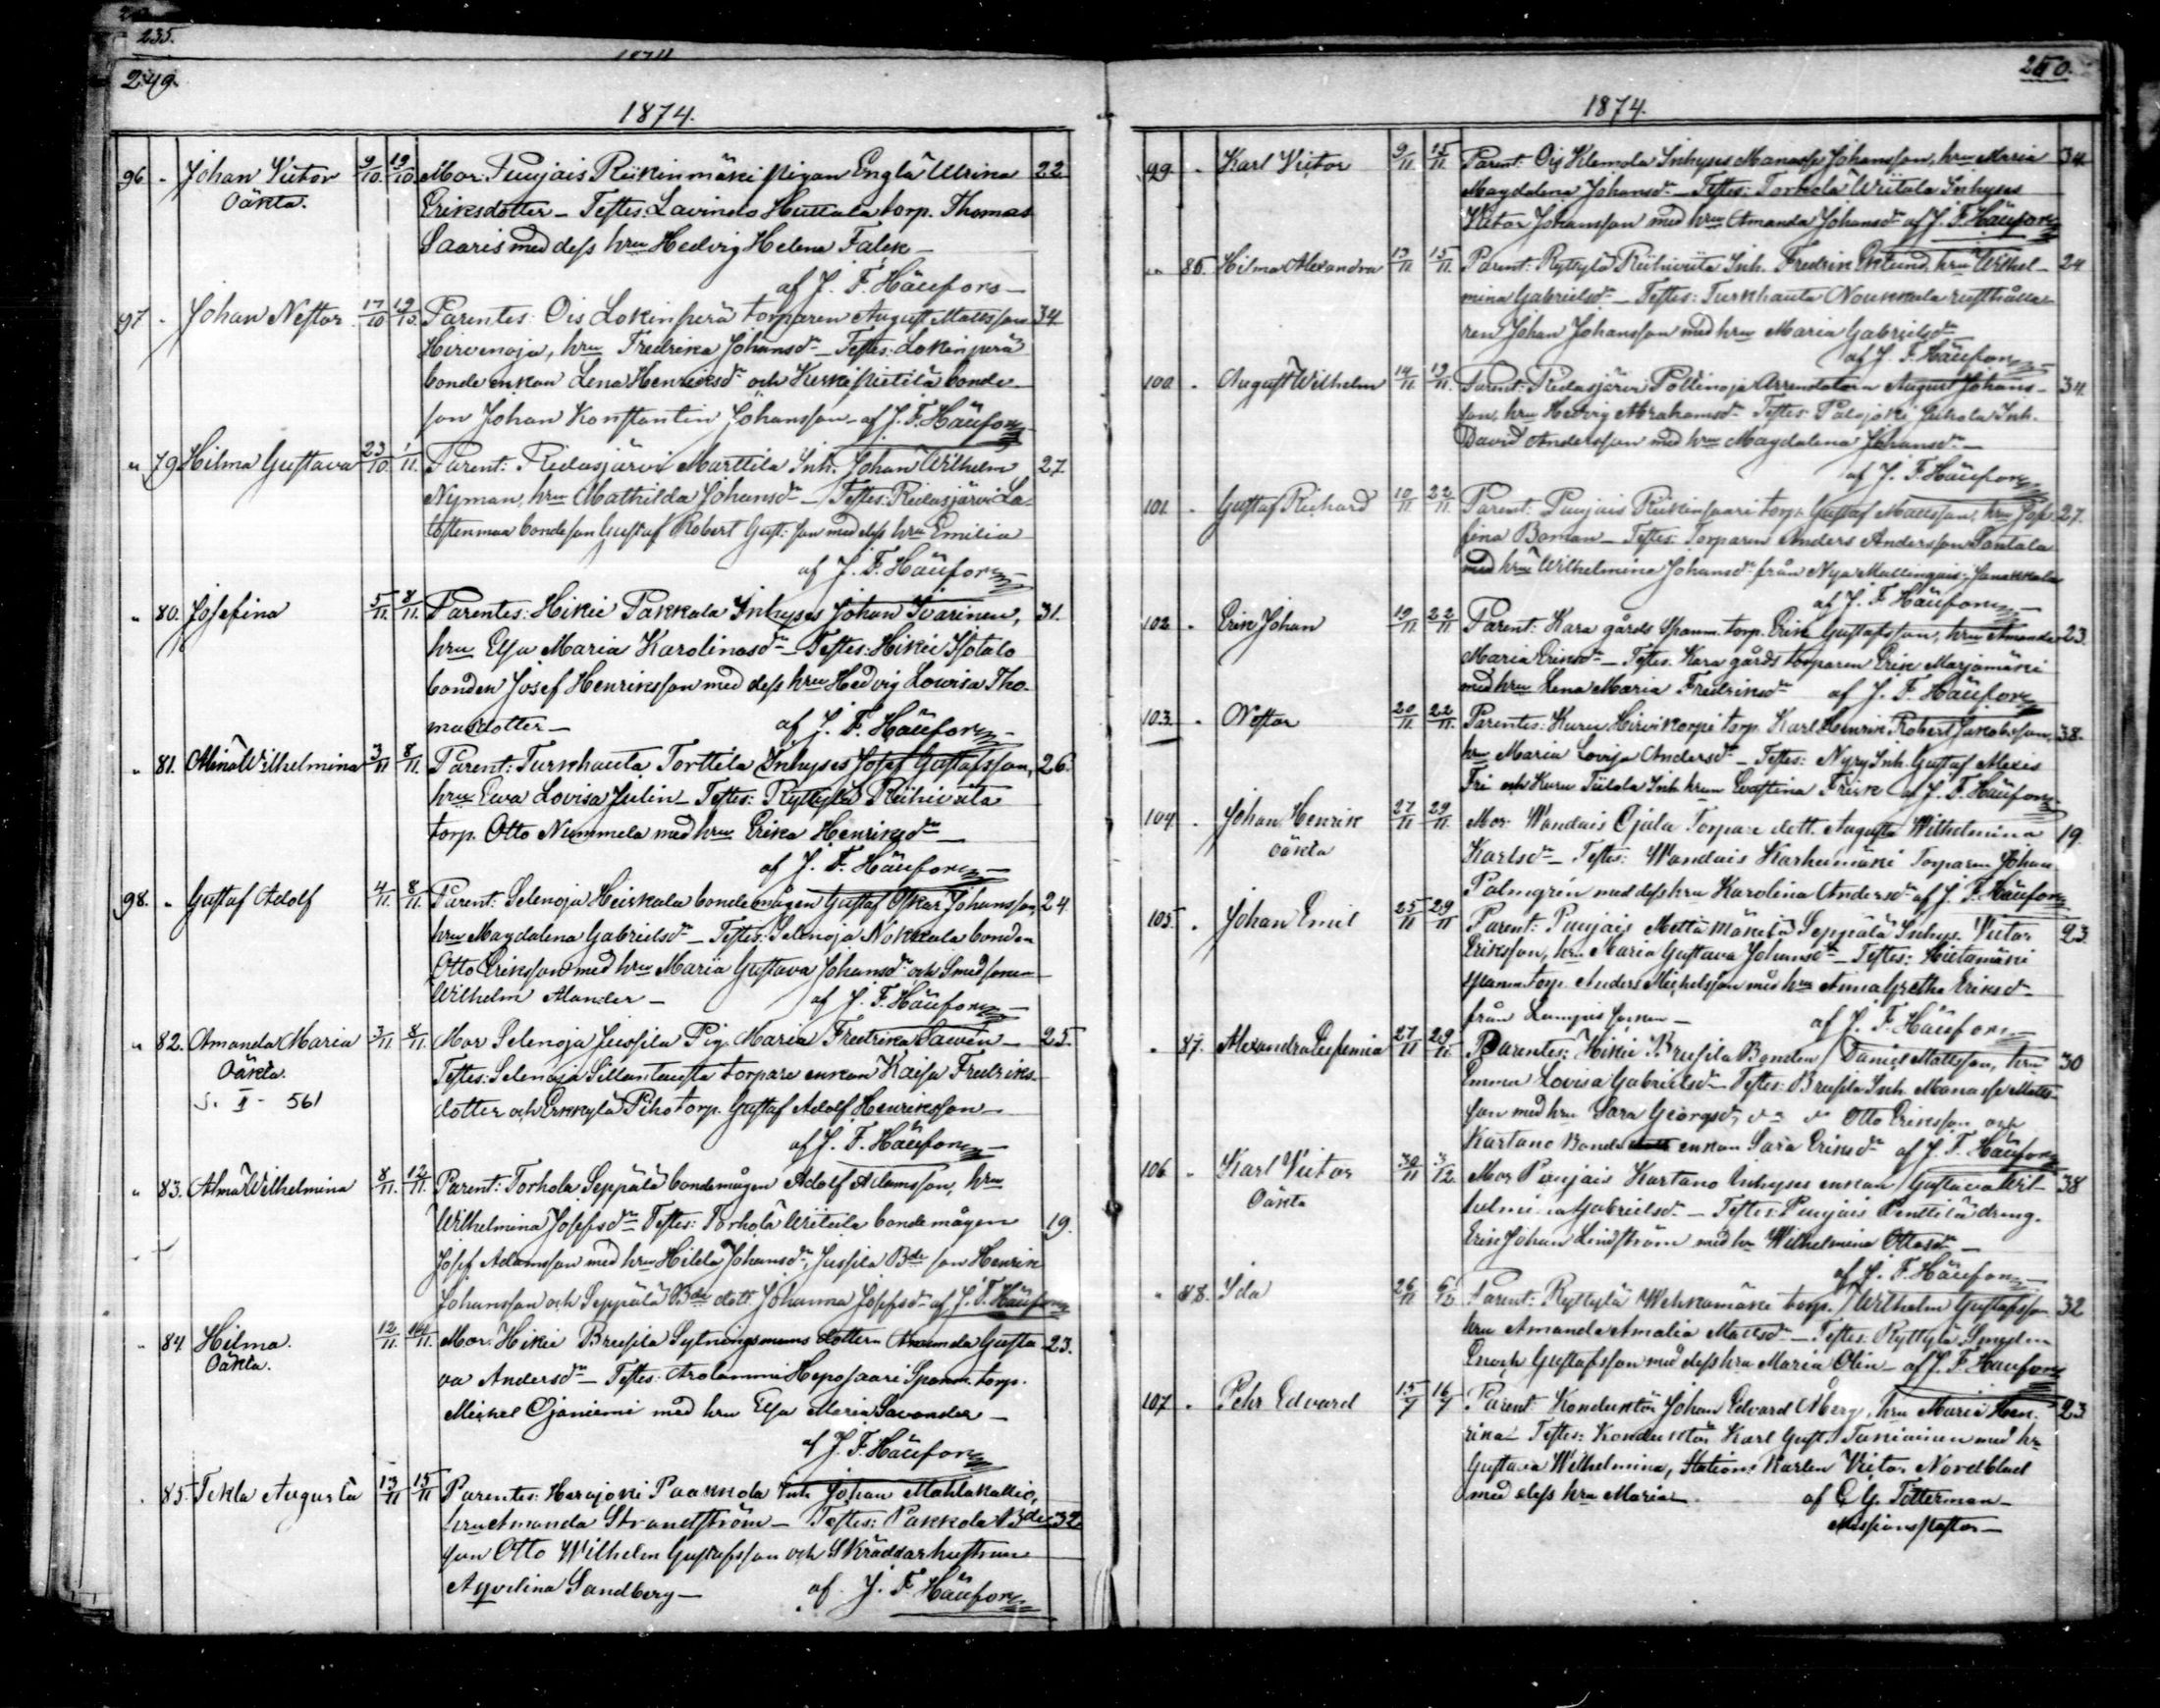 235.
1874
249.
1874.
96 - Johan Victor 9/10. 19/10. Mor: Puujais Riikinmäki pigan Engla Ulrika 22
Oäkta. Eriksdotter - Testes: Lavinsto Huttala torp. Thomas
Saaris med dess hru Hedvig Helena Falck -
af J. F. Häufors -
97 - Johan Nestor 17/10 19/10. Parentes: Ois Lokinperä torparen August Mattsson 34
Hirvenoja, hru Fredrika Johansdr - Testes: Lokinperä
bonde enkan Lena Henriksdr och Kurki Pietilä bonde
son Johan Konstantin Johansson - af J. F. Häufors
" 79 Hilma Gustava 23/10. 1/11. Parent: Ridasjärvi Marttila Inh. Johan Wilhelm 27
Nyman, hru Mathilda Johansdr - Testes: Ridasjärvi La-
tostenmaa bondeson Gustaf Robert Gust: son med dess hru Emilia
af J. F. Häufors -
" 80. Josefina 5/11. 8/11. Parentes: Hikiä Pakkala Inhyses Johan Ivarinen, 31.
hru Elsa Maria Karolinasdr - Testes: Hikiä Isotalo
bonden Josef Henriksson med dess hru Hedvig Lovisa Tho-
masdotter - af J. F. Häufors -
" 81. Alina Wilhelmina 3/11 8/11. Parent: Turkhauta Torttila Inhyses Josef Gustafsson, 26.
hru Ewa Lovisa Julin - Testes: Ryttylä Riihiviita
torp. Otto Nummela med hru Erika Henriksdr -
af J. F. Häufors -
98. " Gustaf Adolf 4/11. 8/11 Parent: Selenoja Heiskala bondemågen Gustaf Oskar Johansson, 24
hru Magdalena Gabrielsdr - Testes: Selenoja Nokkala bonden
Otto Eriksson med hru Maria Gustava Johansdr och Smedsonen
Wilhelm Alander - af J. F. Häufors -
" 82. Amanda Maria 3/11. 8/11. Mor Selenoja Jussila Pig. Maria Fredrika Sawén - 25.
Oäkta. Testes: Selenoja Sillantausta torpare enkan Kaisa Fredriks-
S. II - 561 dotter och Erkkylä Piho torp. Gustaf Adolf Henriksson -
af J. F. Häufors -
" 83. Alma Wilhelmina 8/11. 12/11. Parent: Torhola Seppälä bondemågen Adolf Adamsson, hru
Wilhelmina Josefsdr Testes: Torhola Wiitala bondemågen 19.
Josef Adamsson med hru Hilda Johansdr, Jussila Bde son Henrik
Johansson och Seppälä Bde dott. Johanna Josefsdr af J. F. Häufors
" 84 Hilma. 12/11. 14/11. Mor: Hikiä Brusila Sytningsmans dottern Amanda Gusta- 23.
Oäkta. va Andersdr - Testes: Arolammi Heposaari Spanm. torp.
Mickel Ojaniemi med hru Elsa Maria Savander -
af J. F. Häufors
" 85. Tekla Augusta 13/11 15/11 Parentes: Herajoki Paakkola Inh Johan Mahlakallio,
hru Amanda Strandström - Testes: Pakkola Bde 32
son Otto Wilhelm Gustafsson och Skräddarhustrun
Aqvelina Sandberg - af J. F. Häufors
250.
1874.
99 - Karl Victor 9/11 15/11. Parent: Ois Klemola Inhyses Manasse Johansson, hru Maria 34
Magdalena Johansdr - Testes: Torhola Wiitala Inhyses
Victor Johansson med hru Amanda Johansdr af J. F. Häufors
" 86. Hilma Alexandra 13/11 15/11. Parent: Ryttylä Riihiviita Inh. Fredrik Eklund, hru Wilhel- 24
mina Gabrielsdr - Testes: Turkhauta Noukkala rusthålla-
ren Johan Johansson med hru Maria Gabrielsdr
af J. F. Häufors -
100 - August Wilhelm 14/11 19/11. Parent: Ridasjärvi Pollinoja Arrendatorn August Johans- 34.
son, hru Hedvig Abrahamsdr Testes: Palojoki Jukola Inh.
David Andersson med hru Magdalena Johansdr -
af J. F. Häufors
101. - Gustaf Richard 10/11 22/11. Parent: Puujais Riikinsaari torp. Gustaf Mattsson, hru Jose- 27.
fina Boman - Testes: Torparen Anders Andersson Santala
med hru Wilhelmina Johansdr från Nya Mallinkais, Janakkala
af J. F. Häufors -
102 - Erik Johan 19/11 22/11 Parent: Kara gårds Spanm. torp. Erik Gustafsson, hru Amanda 23
Maria Eriksdr - Testes. Kara gårds torparen Erik Marjamäki
med hru Lena Maria Fredriksdr af J. F. Häufors
103. - Nestor 20/11 22/11. Parentes: Kuru Hirvikorpi torp. Karl Henrik Robert Jakobsson, 38.
hru Maria Lovisa Andersdr - Testes: Nyry Inh. Gustaf Alexis
Fri och Kuru Tiilola Inh hrun Evastina Frisk af J. F. Häufors
104 - Johan Henrik 27/11 29/11. Mor Wandais Ojala Torpare dott. Augusta Wilhelmina 19.
oäkta Karlsdr - Testes: Wandais Karhumäki Torparen Johan
Palmgrén med dess hru Karolina Andersdr af J. F. Häufors
105. - Johan Emil 25/11 29/11 Parent: Puujais Mettämäkilä Seppälä Inhys. Victor 23
Eriksson, hru Maria Gustava Johansdr - Testes: Hietamäki
spanm torp. Anders Michelsson med hru Anna Gretha Eriksdr
från Lampis socken - af J. F. Häufors -
" 87. Alexandra Eufemia 27/11 29/11. Parentes: Hikiä Brusila Bonden Daniel Mattsson, hru 30
Emma Lovisa Gabrielsdr Testes: Brusila Inh. Manasse Matts-
son med hru Sara Georgsdr, do do Otto Eriksson och
Kartano Bonde enkan Sara Eriksdr af J. F. Häufors
106 - Karl Victor 30/11 3/12. Mor Puujais Kartano Inhyses enkan Gustava Wil- 38
Oäkta helmina Gabrielsdr - Testes: Puujais Penttilä dräng.
Erik Johan Lindström med hru Wilhelmina Ottosdr -
af J. F. Häufors -
" 88. Ida 26/11 6/12 Parent: Ryttylä Wehkamäki torp. Wilhelm Gustafsson 32
hru Amanda Amalia Mattsdr - Testes: Ryttylä Smeden
Enoch Gustafsson med dess hru Maria Olin - af J. F. Häufors
107 - Pehr Edvard 15/7 16/7 Parent. Konduktör Johan Edvard Åberg, hru Maria Hen- 23
rika - Testes: Konduktör Karl Gust. Tukiainen med hr
Gustava Wilhelmina, Stations Karlen Victor Nordblad
med dess hru Maria - af C G. Tötterman -
Missionspastor -